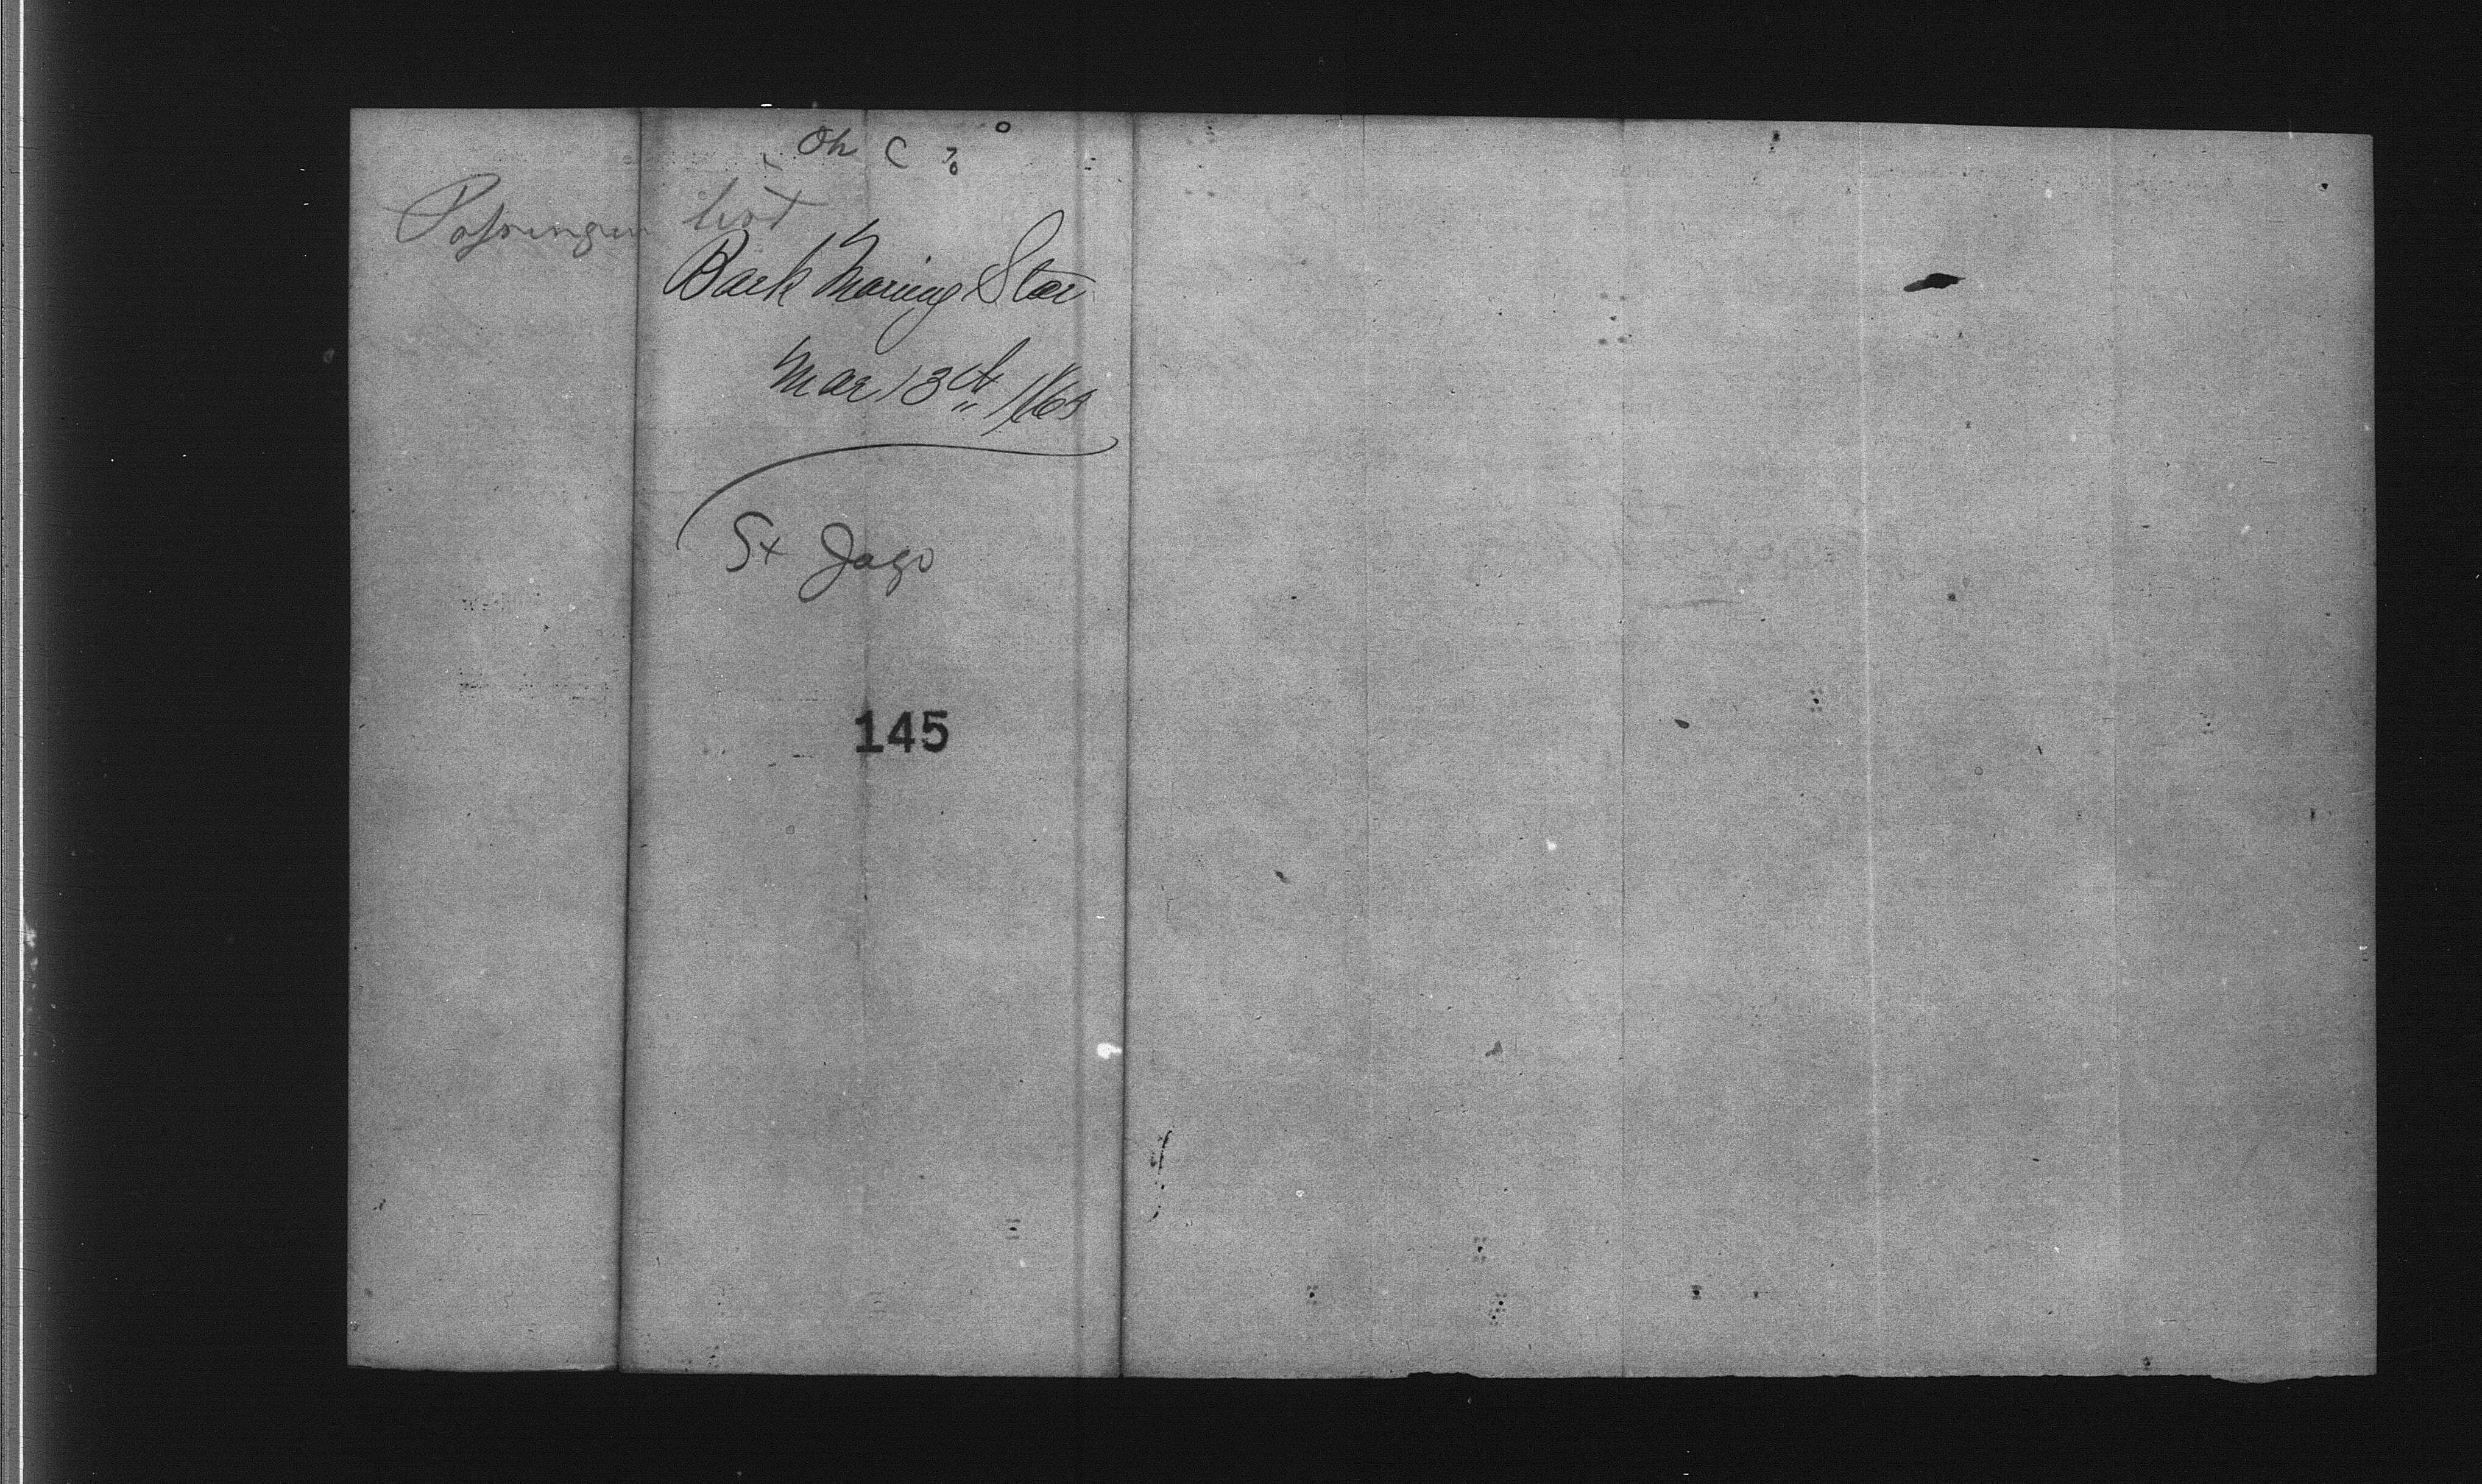 Passenger list
Bark Morning Star
Mar 13th
St Jago
145